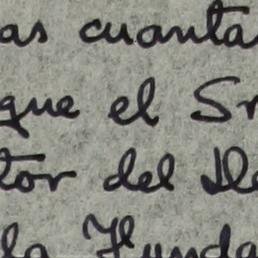 as cuanta
que el Sr
tor del De
la Funda